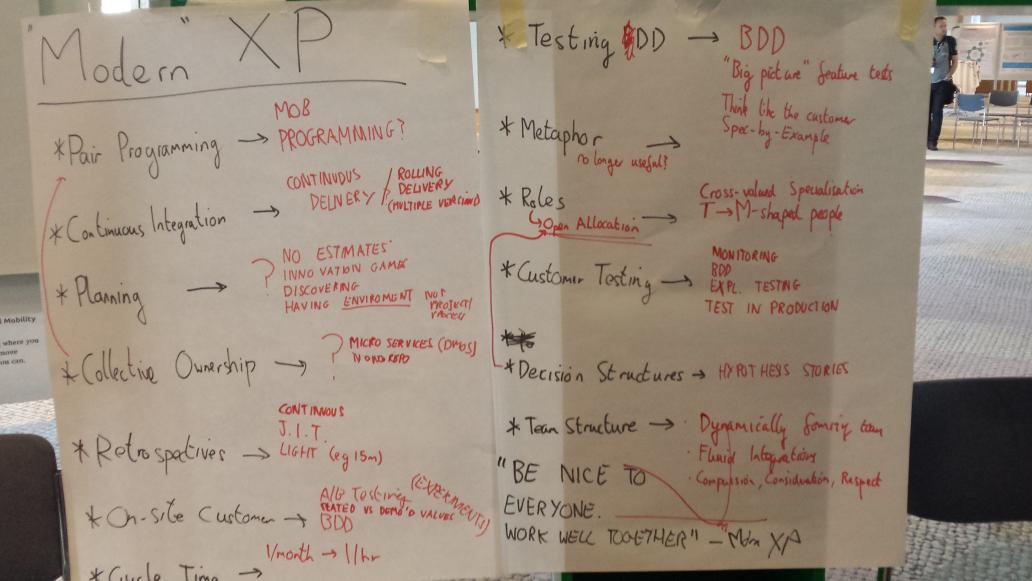 "Modern" XP
*Pair Programming → MOB
PROGRAMMING?
*Continuous Integration → CONTINUOUS
DELIVERY / ROLLING
DELIVERY
(MULTIPLE VERSIONS)
*Planning → ? NO ESTIMATES
INNOVATION GAMES
DISCOVERING
HAVING ENVIROMENT NOT
PROJECT/
*Collective Ownership → ? MICRO SERVICES (DMOS)
MONOREPO
*Retrospectives → CONTINOUS
J.I.T.
LIGHT (eg 15m)
*On-site Customer → A/B Testing (EXPERIMENTS)
STATED VS DEMO'D VALUES
BDD
*Cycle Time → 1/month → 1/hr
*Testing DD → BDD
"Big picture" feature tests
Think like the customer
Spec-by-Example
*Metaphor →
no longer useful?
*Roles → Cross-valued Specialisation
Open Allocation T→M-shaped people
*Customer Testing → MONITORING
BDD
EXPL. TESTING
TEST IN PRODUCTION
*Decision Structures → HYPOTHESIS STORIES
*Team Structure → · Dynamically forming team
· Fluid Integrations
· Compassion, Consideration, Respect
"BE NICE TO
EVERYONE.
WORK WELL TOGETHER" – Mdrn XP
Mobility
where you
move
can.